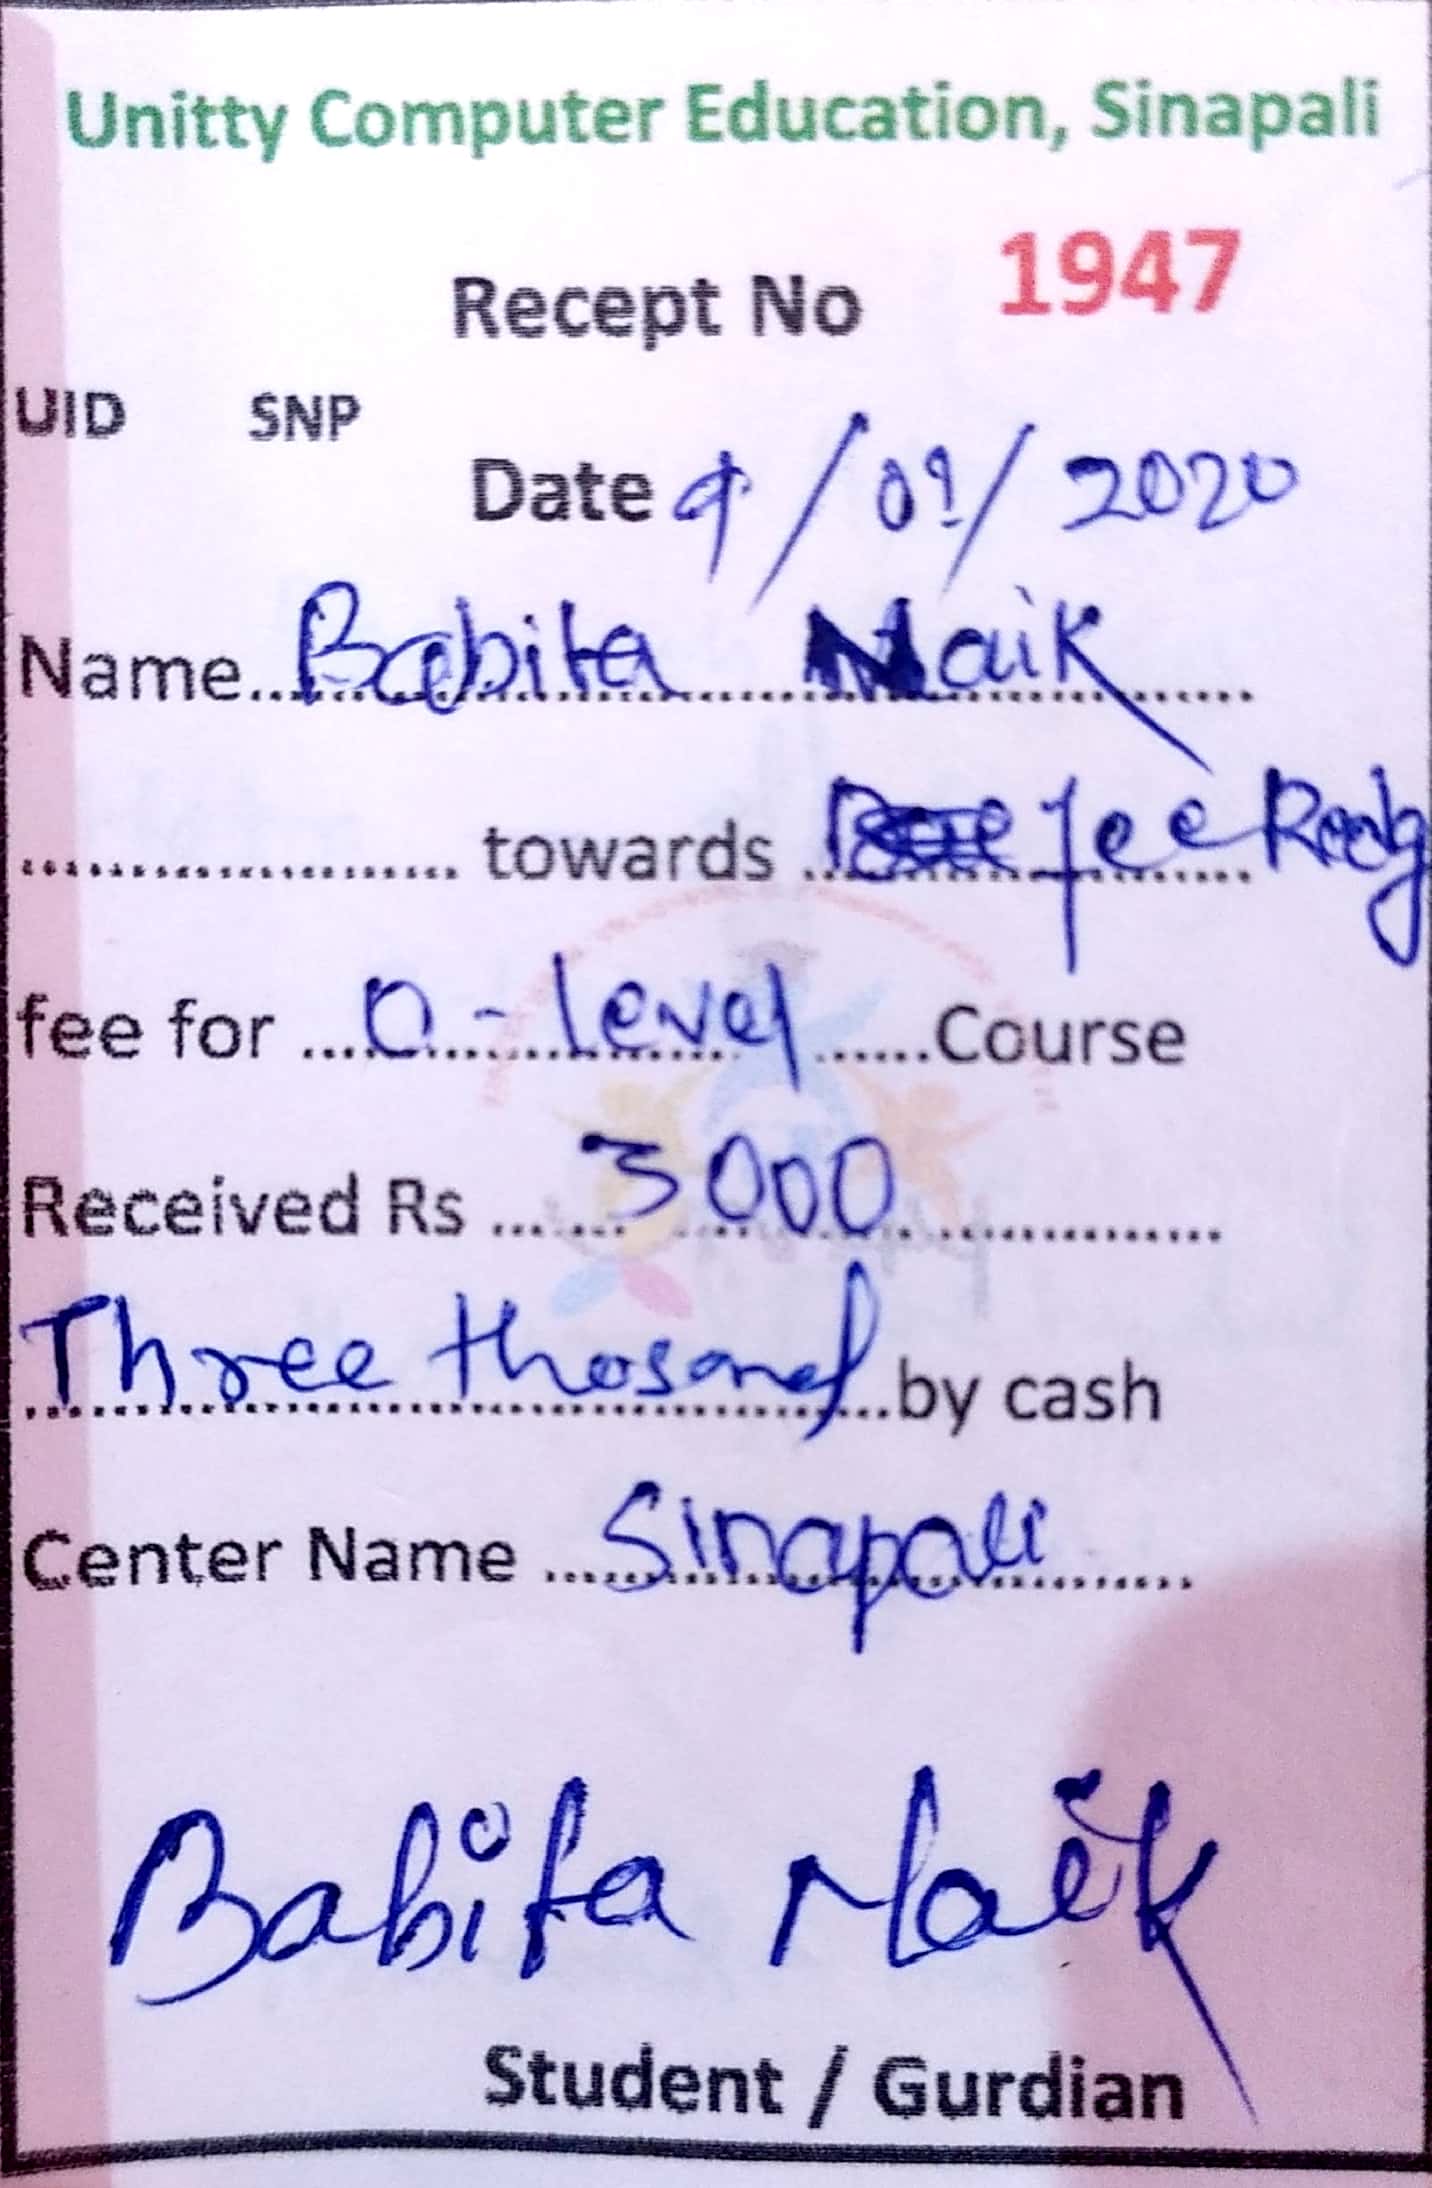 Unitty Computer Education, Sinapali
Recept No 1947
UID SNP
Date 9/09/2020
Name Babita Naik
towards fee
fee for O-level Course
Received Rs 3000
Three thosand by cash
Center Name Sinapali
Babita Naik
Student / Gurdian